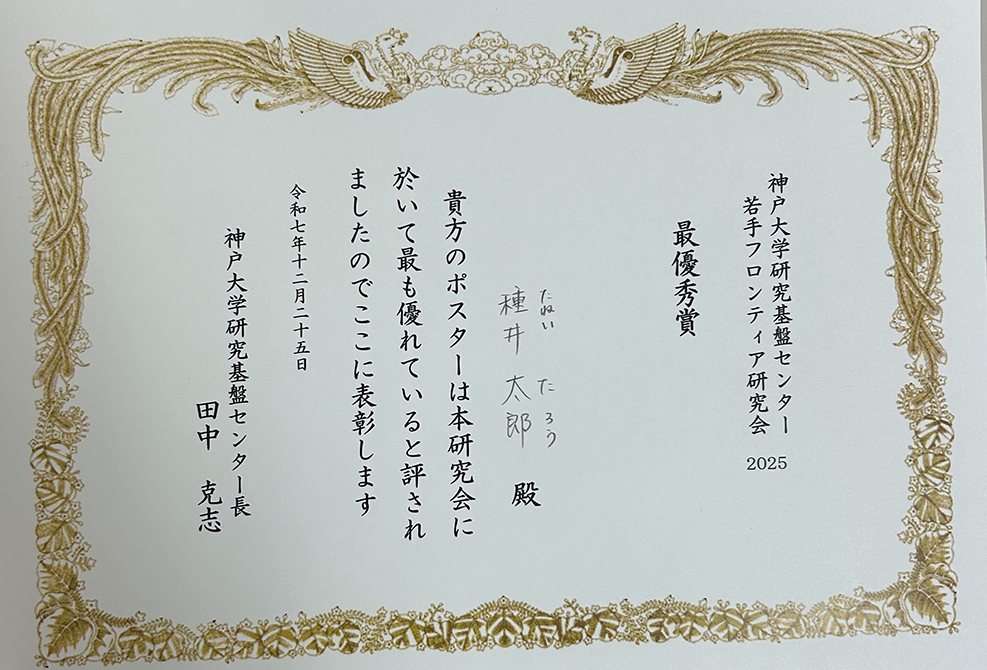 神戸大学研究基盤センター
若手フロンティア研究会 2025
最優秀賞
たねい たろう
種井 太郎 殿
貴方のポスターは本研究会に
於いて最も優れていると評され
ましたのでここに表彰します
令和七年十二月二十五日
神戸大学研究基盤センター長
田中 克志